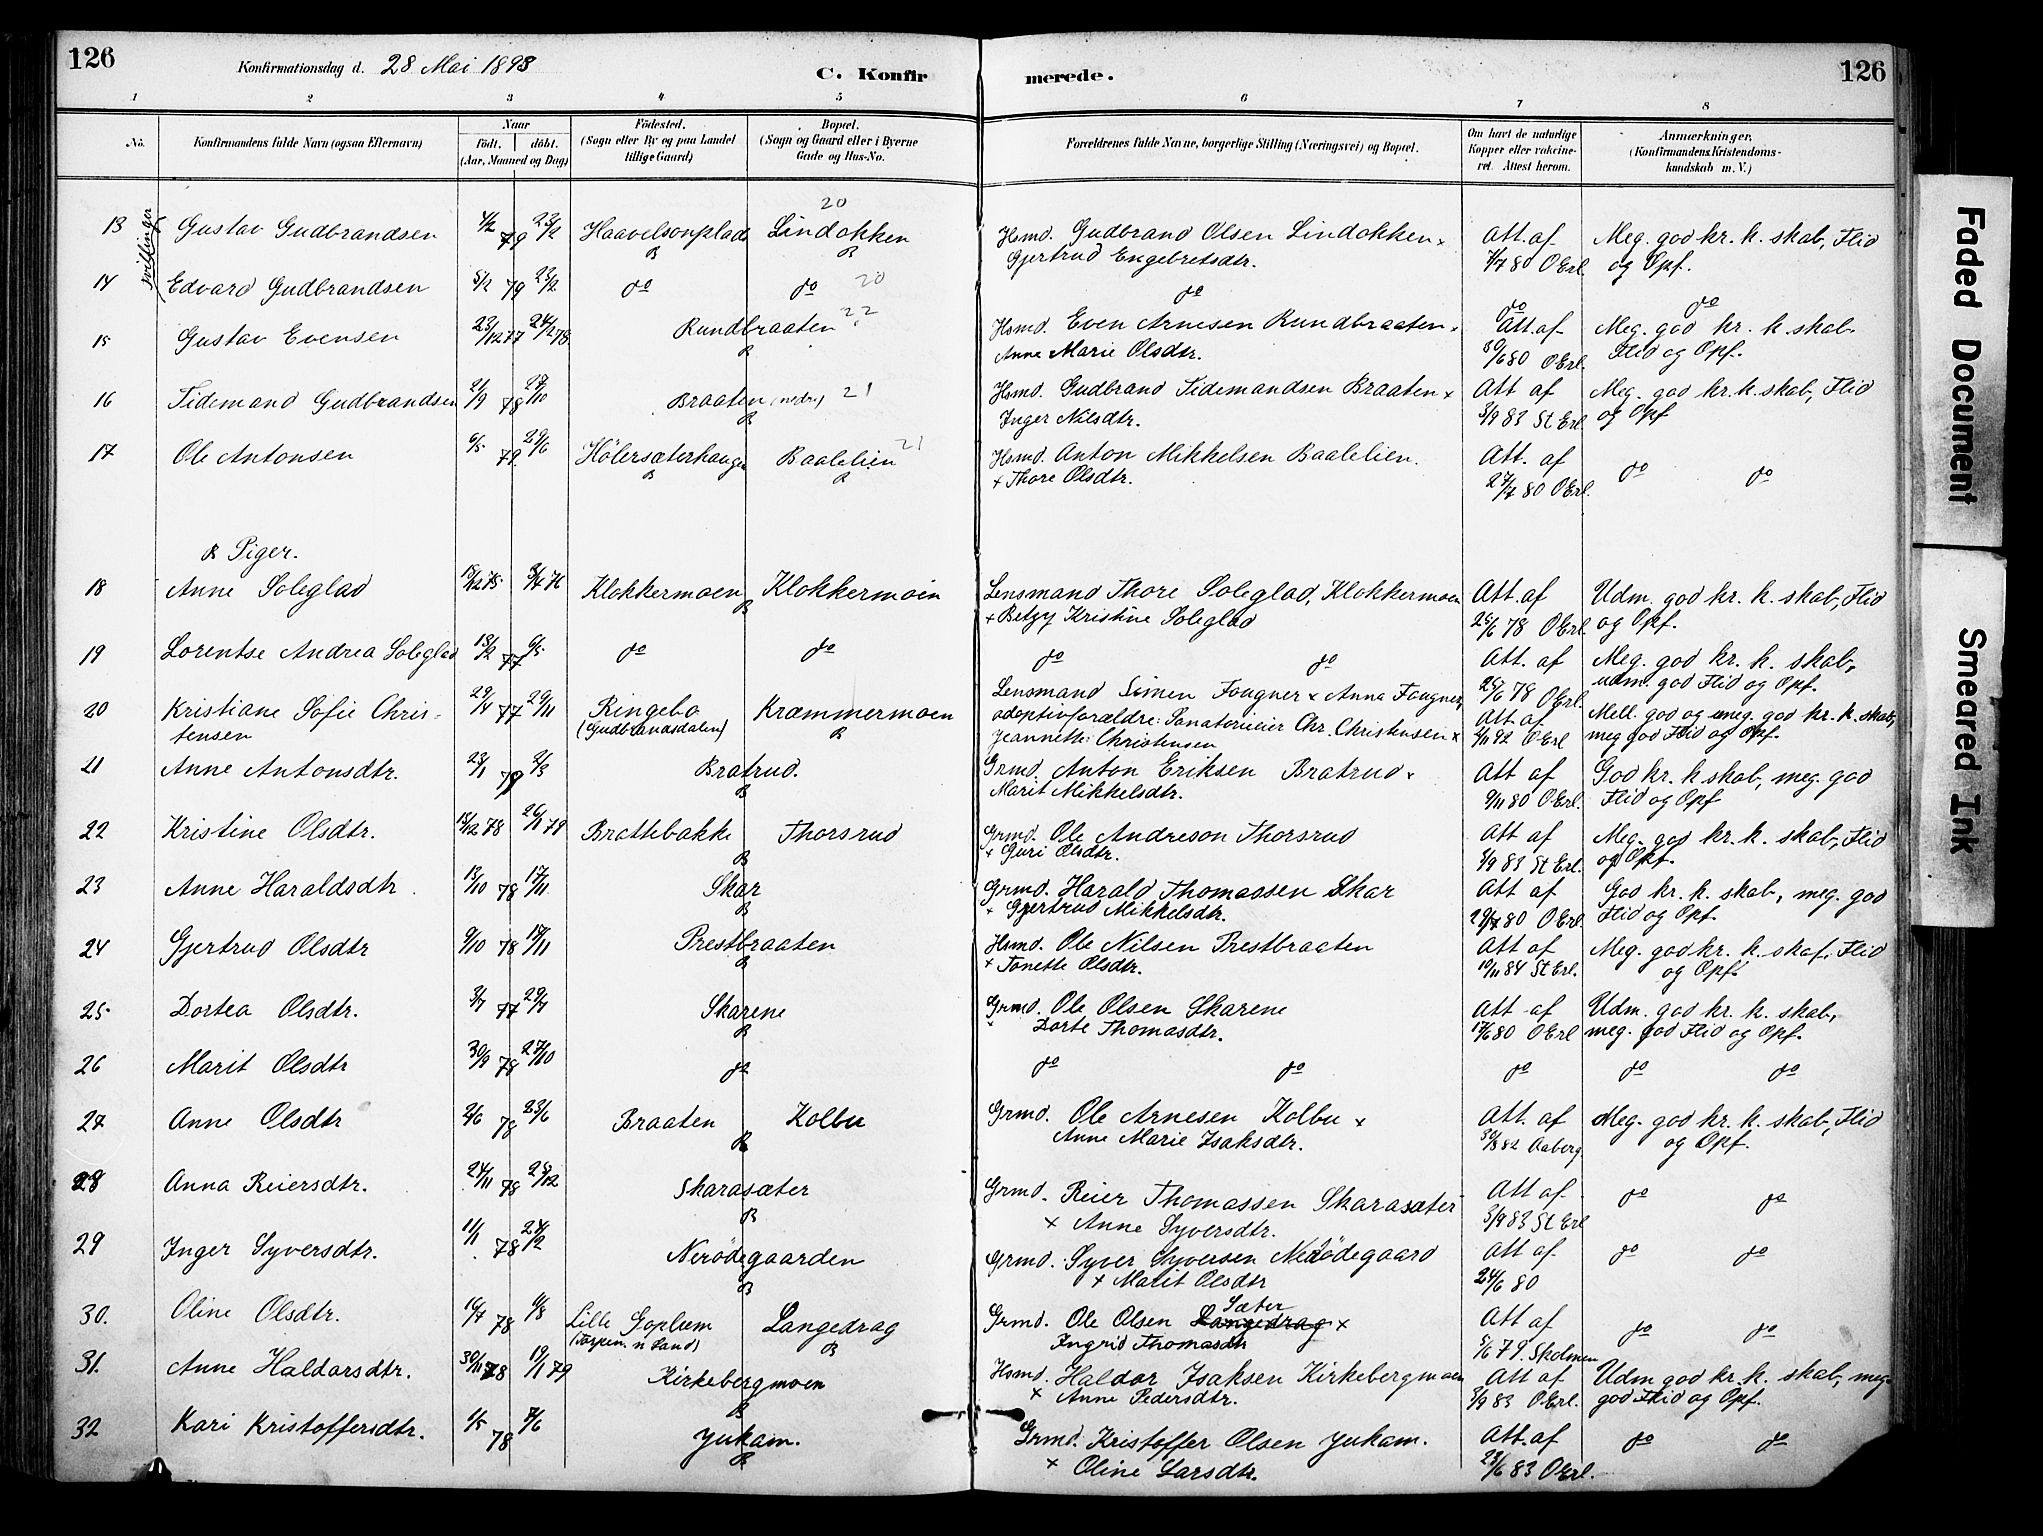 126
Konfirmationsdag d. 28 Mai 1893
C. Konfir merede.
126
1 2 3 4 5 6 7 8
No.
Konfirmandens fulde Navn (ogsaa Efternavn)
Naar
Födt. döbt.
(Aar, Maaned og Dag)
Födested.
(Sogn eller By og paa Landet
tillige Gaard)
Bopæl.
(Sogn og Gaard eller i Byerne
Gade og Hus-No.
Forældrenes fulde Navne, borgerlige Stilling (Næringsvei) og Bopæl.
Om havt de naturlige
Kopper eller vakcine-
ret. Attest herom.
Anmærkninger.
(Konfirmandens Kristendoms-
kundskab m. V.)
tvillinger
20
13 Gustav Gudbrandsen 4/2 79 23/2 Haavelsonplads Lindokken Hsmd. Gudbrand Olsen Lindokken x Att. af Meg. god kr. k. skab, Flid
B B Gjertrud Engebretsdtr. 7/7 80 O Erl. og Opf.
14 Edvard Gudbrandsen 5/2 79 23/2 do do 20 do do do
15 Gustav Evensen 23/12 77 24/2 78 Rundbraaten 22 Hsmd. Even Arnesen Rundbraaten x Att. af Meg. god kr. k. skab
B Anne Marie Olsdtr. 30/6 80 O Erl. Flid og Opf.
16 Tidemand Gudbrandsen 21/9 78 27/10 Braaten (nedre) 21 Hsmd. Gudbrand Tidemandsen Braaten x Att af Meg. god kr. k. skab, Flid
B Inger Nilsdtr. 3/9 83 St Erl. og Opf
17 Ole Antonsen 6/5 79 29/6 Hölersæterhaugen Baalelien 21 Hsmd. Anton Mikkelsen Baalelien. Att. af do do
B B x Thore Olsdtr. 27/7 80 O Erl.
B Piger.
18 Anne Soleglad 15/12 75 3/4 76 Klokkermoen Klokkermoen Lensmand Thore Soleglad, Klokkermoen Att. af Udm. god kr. k. skab, Flid
B x Betzy Kristine Soleglad 25/6 78 O Erl. og Opf.
19 Lorentse Andrea Soleglad 18/2 77 6/5 do do do do Att. af Meg. god kr. k. skab,
25/6 78 O Erl. udm. god Flid og Opf.
20 Kristiane Sofie Chris- 29/4 77 29/11 Ringebo Kræmmermoen Lensmand Simen Fougner x Anna Fougner,
tensen (Gudbrandsdalen) B adoptivforældre: Sanatorieeier Chr. Christensen x Att. af Mell. god og meg. god kr. k. skab,
Jeannette Christensen 2/11 92 O Erl meg god Flid og Opf.
21 Anne Antonsdtr. 23/1 79 2/3 Bratrud. Grmd. Anton Eriksen Bratrud x Att af God kr. k skab, meg. god
B Marit Mikkelsdtr. 9/11 80 O Erl. Flid og Opf
22 Kristine Olsdtr. 15/12 78 26/1 79 Brattebakke Thorsrud Grmd. Ole Andreson Thorsrud Att af Meg. god kr. k. skab, Flid
B x Guri Olsdtr. 3/9 83 St Erl. og Opf.
23 Anne Haraldsdtr. 13/10 78 17/11 Skar Grmd. Harald Thomassen Skar Att af God kr. k. skab, meg. god
B x Gjertrud Mikkelsdtr. 29/7 80 O Erl. Flid og Opf.
24 Gjertrud Olsdtr 9/10 78 17/11 Prestbraaten Hsmd. Ole Nilsen Prestbraaten Att af Meg. god kr. k. skab, Flid
B x Tonette Olsdtr. 10/11 84 St Erl. og Opf.
25 Dortea Olsdtr. 3/7 77 29/7 Skarene Grmd. Ole Olsen Skarene Att af Udm. god kr. k. skab,
B x Dorte Thomasdtr. 17/6 80 O Erl meg. god Flid og Opf.
26 Marit Olsdtr 30/9 78 27/10 do do do do do do
27 Anne Olsdtr 2/6 78 23/6 Braaten Kolbu Grmd. Ole Arnesen Kolbu x Att. af Meg. god kr. k. skab, Flid
B Anne Marie Isaksdtr. 30/8 82 Aaberg og Opf.
28 Anna Reiersdtr. 24/11 78 25/12 Skarasæter Grmd. Reier Thomassen Skarasæter Att af do do
B x Anne Syversdtr. 3/9 83 St Erl
29 Inger Syversdtr. 11/1 78 24/2 Nerödegaarden Grmd. Syver Syversen Nerödegaard Att af do do
B x Marit Olsdtr 24/6 80
30. Oline Olsdtr. 16/7 78 11/8 Lille Goplum Langedrag Grmd. Ole Olsen Langedrag Sæter x Att af do do
(Torpen. n Land) B Ingrid Thomasdtr 5/6 79. Skolmen
31. Anne Haldorsdtr. 30/11 78 19/1 79 Kirkebergmoen Hsmd. Haldor Isaksen Kirkebergmoen Att af Udm god kr. k. skab, meg.
B x Anne Pedersdtr. 3/9 83 O Erl. god Flid og Opf.
32 Kari Kristoffersdtr. 1/5 78 7/6 Jukam. Grmd. Kristoffer Olsen Jukam. Att. af do do
B x Oline Larsdtr. 23/6 83 O Erl.
Faded Document
Smeared Ink